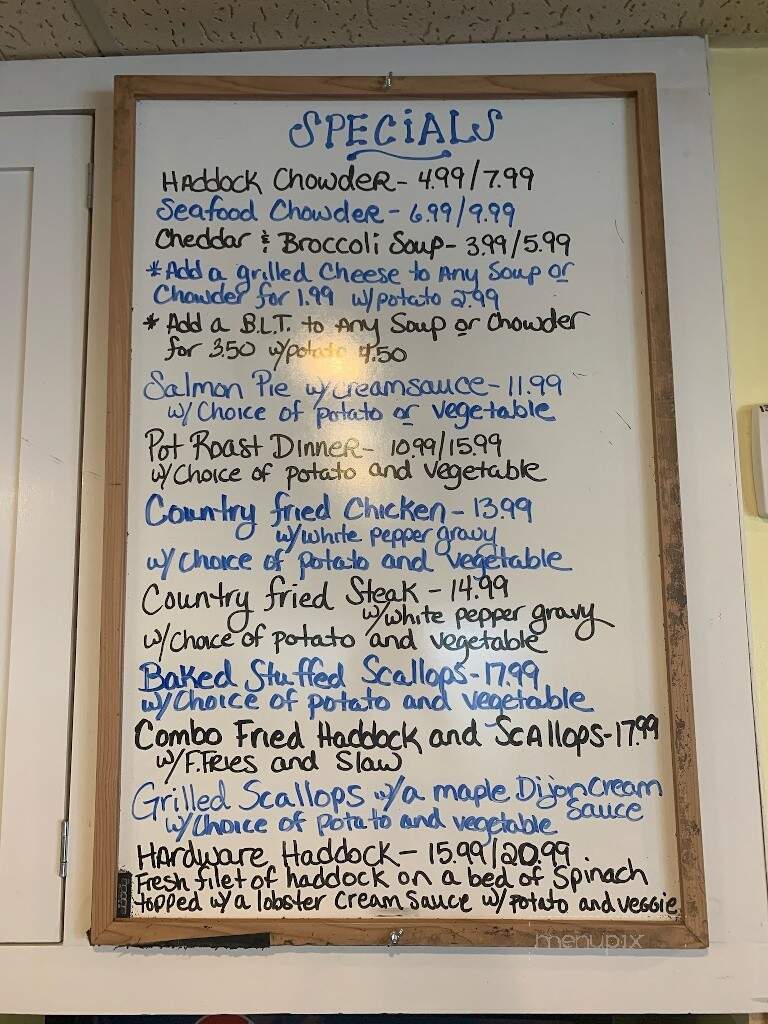 SPECiALS
HAddock ChowdeR- 4.99/7.99
Seafood ChowdeR - 6.99/9.99
Cheddar & Broccoli Soup- 3.99/5.99
* Add a grilled Cheese to Any Soup or
Chowder for 1.99 w/potato 2.99
* Add a B.L.T. to Any Soup or Chowder
for 3.50 w/potato 4.50
Salmon Pie w/creamsauce- 11.99
w/ Choice of potato or vegetable
Pot Roast Dinner- 10.99/15.99
w/Choice of potato and vegetable
Country fried Chicken - 13.99
w/white pepper gravy
w/ Choice of potato and vegetable
Country fried Steak - 14.99
w/white pepper gravy
w/Choice of potato and vegetable
Baked Stuffed Scallops-17.99
w/Choice of potato and vegetable
Combo Fried Haddock and ScAllops-17.99
w/F.Fries and Slaw
Grilled Scallops w/a maple Dijon Cream
Sauce
w/Choice of potato and vegetable
HARdware Haddock- 15.99/20.99
Fresh filet of haddock on a bed of Spinach
topped w/a lobster Cream Sauce w/ potato and veggie
menupix